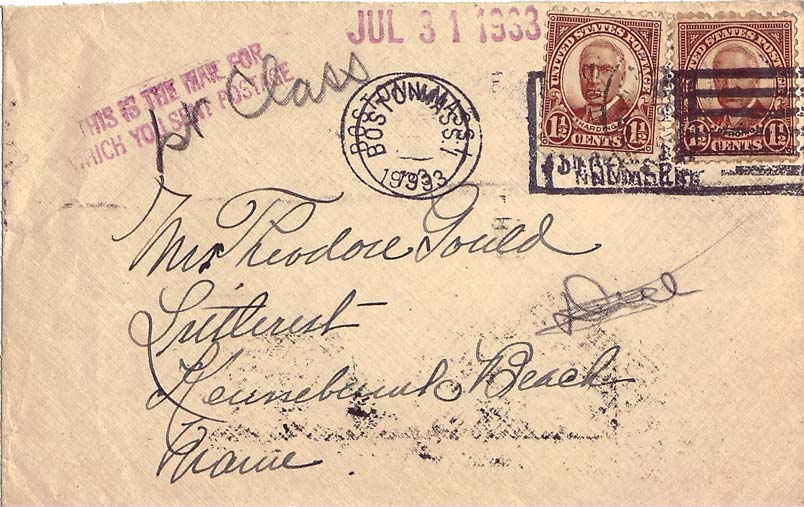 JUL 31 1933
THIS IS THE MAIL FOR
WHICH YOU SENT POSTAGE
1st Class
BOSTON, MASS. 1
1933
UNITED STATES POSTAGE
HARDING
1½ CENTS 1½
UNITED STATES POSTAGE
HARDING
1½ CENTS 1½
Mrs Theodore Gould
Kennebunk Beach
Maine
Due